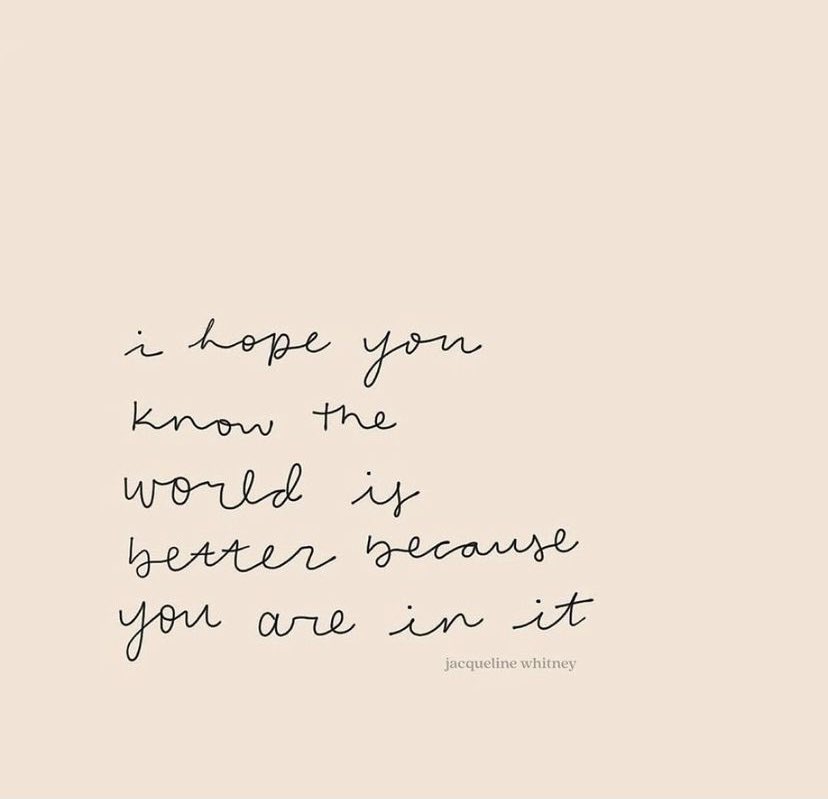 i hope you
know the
world is
better because
you are in it
jacqueline whitney